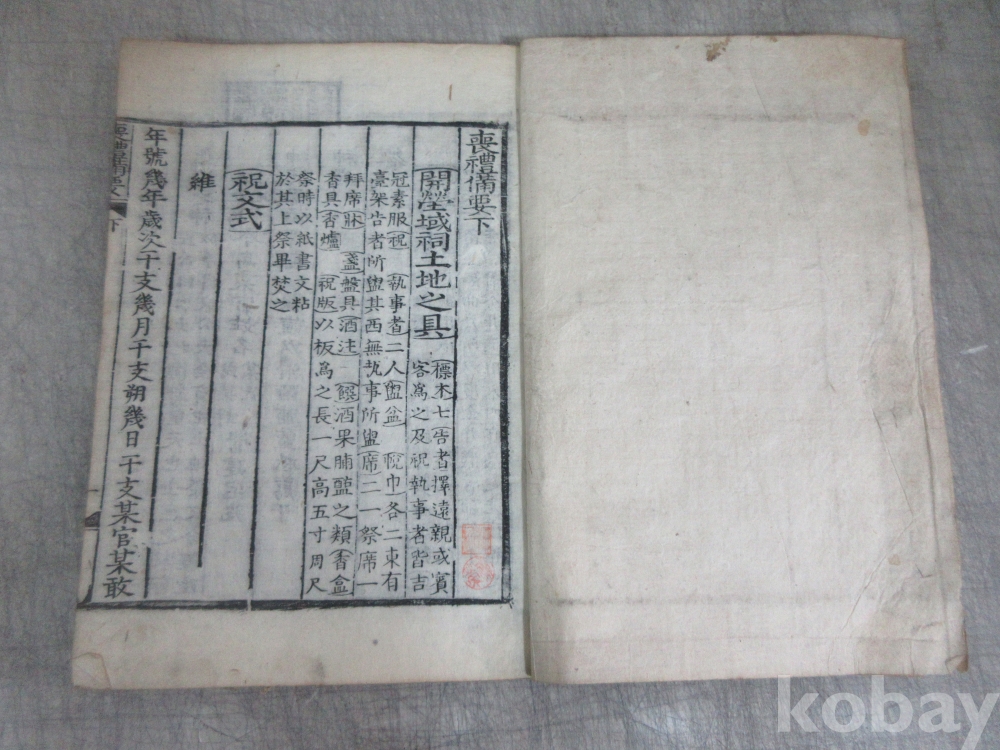 喪禮備要下
開塋域祠土地之具
標木七告者擇遠親或賓
客為之及祝執事者皆吉
冠素服祝 執事者二人盥盆 帨巾各二東有
臺架告者所盥其西無執事所盥席二一祭席一
拜席牀 盞盤具酒注 饌酒果脯醢之類香盒
香具香爐 祝版以板為之長一尺高五寸周尺
祭時以紙書文粘
於其上祭畢焚之
祝文式
維
年號幾年歲次干支幾月干支朔幾日干支某官某敢
喪禮備要 下
kobay